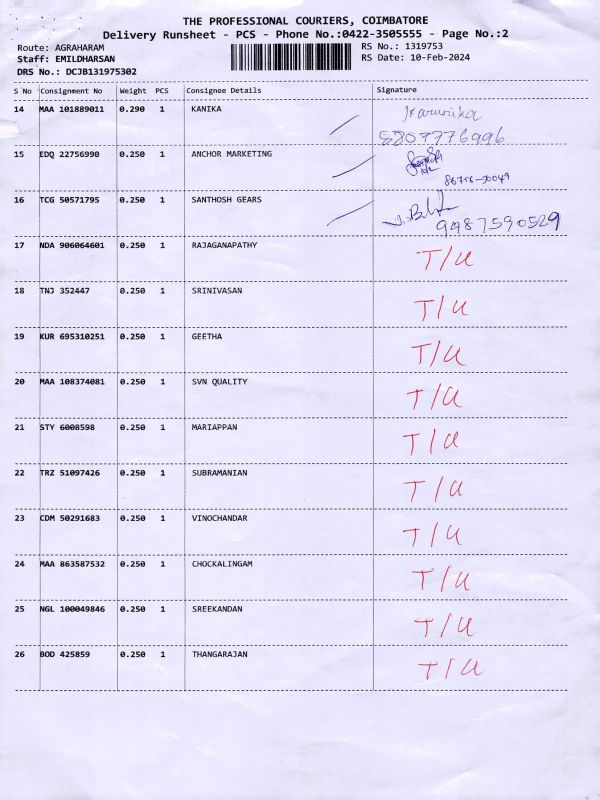 THE PROFESSIONAL COURIERS, COIMBATORE
Delivery Runsheet - PCS - Phone No.:0422-3505555 - Page No.:2
Route: AGRAHARAM RS No.: 1319753
Staff: EMILDHARSAN RS Date: 10-Feb-2024
DRS No.: DCJB131975302
S No Consignment No Weight PCS Consignee Details Signature
14 MAA 101889011 0.290 1 KANIKA
8807776996
15 EDQ 22756990 0.250 1 ANCHOR MARKETING
16 TCG 50571795 0.250 1 SANTHOSH GEARS
9487590529
17 NDA 906064601 0.250 1 RAJAGANAPATHY T/U
18 TNJ 352447 0.250 1 SRINIVASAN T/U
19 KUR 695310251 0.250 1 GEETHA T/U
20 MAA 108374081 0.250 1 SVN QUALITY T/U
21 STY 6008598 0.250 1 MARIAPPAN T/U
22 TRZ 51097426 0.250 1 SUBRAMANIAN T/U
23 CDM 50291683 0.250 1 VINOCHANDAR T/U
24 MAA 863587532 0.250 1 CHOCKALINGAM T/U
25 NGL 100049846 0.250 1 SREEKANDAN T/U
26 BOD 425859 0.250 1 THANGARAJAN T/U